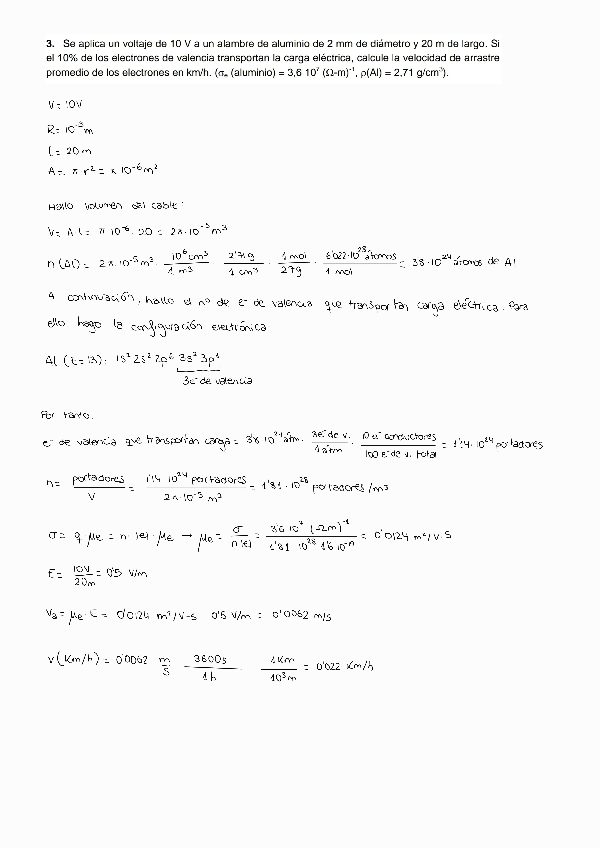 3. Se aplica un voltaje de 10 V a un alambre de aluminio de 2 mm de diámetro y 20 m de largo. Si
el 10% de los electrones de valencia transportan la carga eléctrica, calcule la velocidad de arrastre
promedio de los electrones en km/h. (σₑ (aluminio) = 3,6 10⁷ (Ω-m)⁻¹, ρ(Al) = 2,71 g/cm³).
V = 10V
R = 10⁻³ m
l = 20 m
A = π · r² = π 10⁻⁶ m²
Hallo volumen del cable:
V = A · l = π 10⁻⁶ · 20 = 2π · 10⁻⁵ m³
n (Al) = 2π · 10⁻⁵ m³ · 10⁶ cm³ / 1 m³ · 2'71 g / 1 cm³ · 1 mol / 27g · 6'022 · 10²³ átomos / 1 mol = 3'8 · 10²⁴ átomos de Al
A continuación, hallo el nº de e⁻ de valencia que transportan carga eléctrica. Para
ello hago la configuración electrónica
Al (z = 13): 1s² 2s² 2p⁶ 3s² 3p¹
3e⁻ de valencia
Por tanto:
e⁻ de valencia que transportan carga = 3'8 · 10²⁴ átm · 3e⁻ de v. / 1 átm · 10 e⁻ conductores / 100 e⁻ de v. total = 1'14 · 10²⁴ portadores
n = portadores / V = 1'14 · 10²⁴ portadores / 2π · 10⁻⁵ m³ = 1'81 · 10²⁸ portadores / m³
σ = q μₑ = n · |e| · μₑ → μₑ = σ / n |e| = 3'6 10⁷ (Ωm)⁻¹ / 1'81 · 10²⁸ 1'6 10⁻¹⁹ = 0'0124 m²/V·S
E = 10V / 20m = 0'5 V/m
Va = μₑ · E = 0'0124 m²/V-s 0'5 V/m = 0'0062 m/s
v (Km/h) = 0'0062 m / s · 3600s / 1h · 1Km / 10³ m = 0'022 Km/h